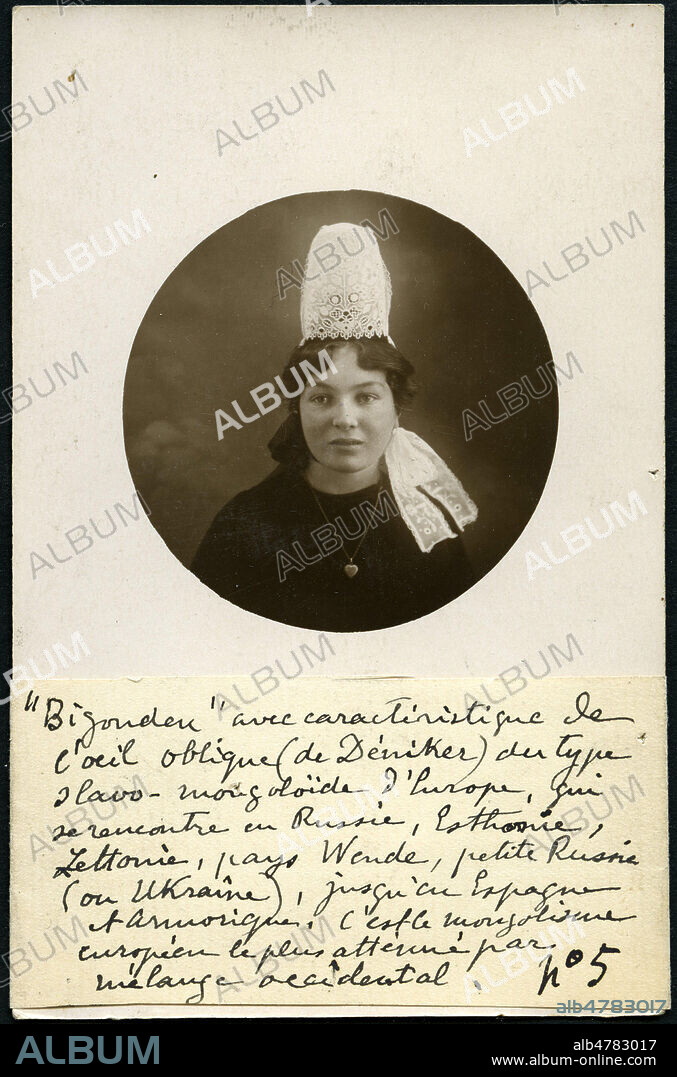 "Bigouden" avec caractéristique de
l'oeil oblique (de Déniker) du type
slavo-mongoloïde d'Europe, qui
se rencontre en Russie, Esthonie,
Lettonie, pays Wende, petite Russie
(ou Ukraîne), jusqu'en Espagne
et Armorique. C'est le mongolisme
européen le plus atténué par
mélange occidental.
n° 5
alb4783017
ALBUM
alb4783017
www.album-online.com